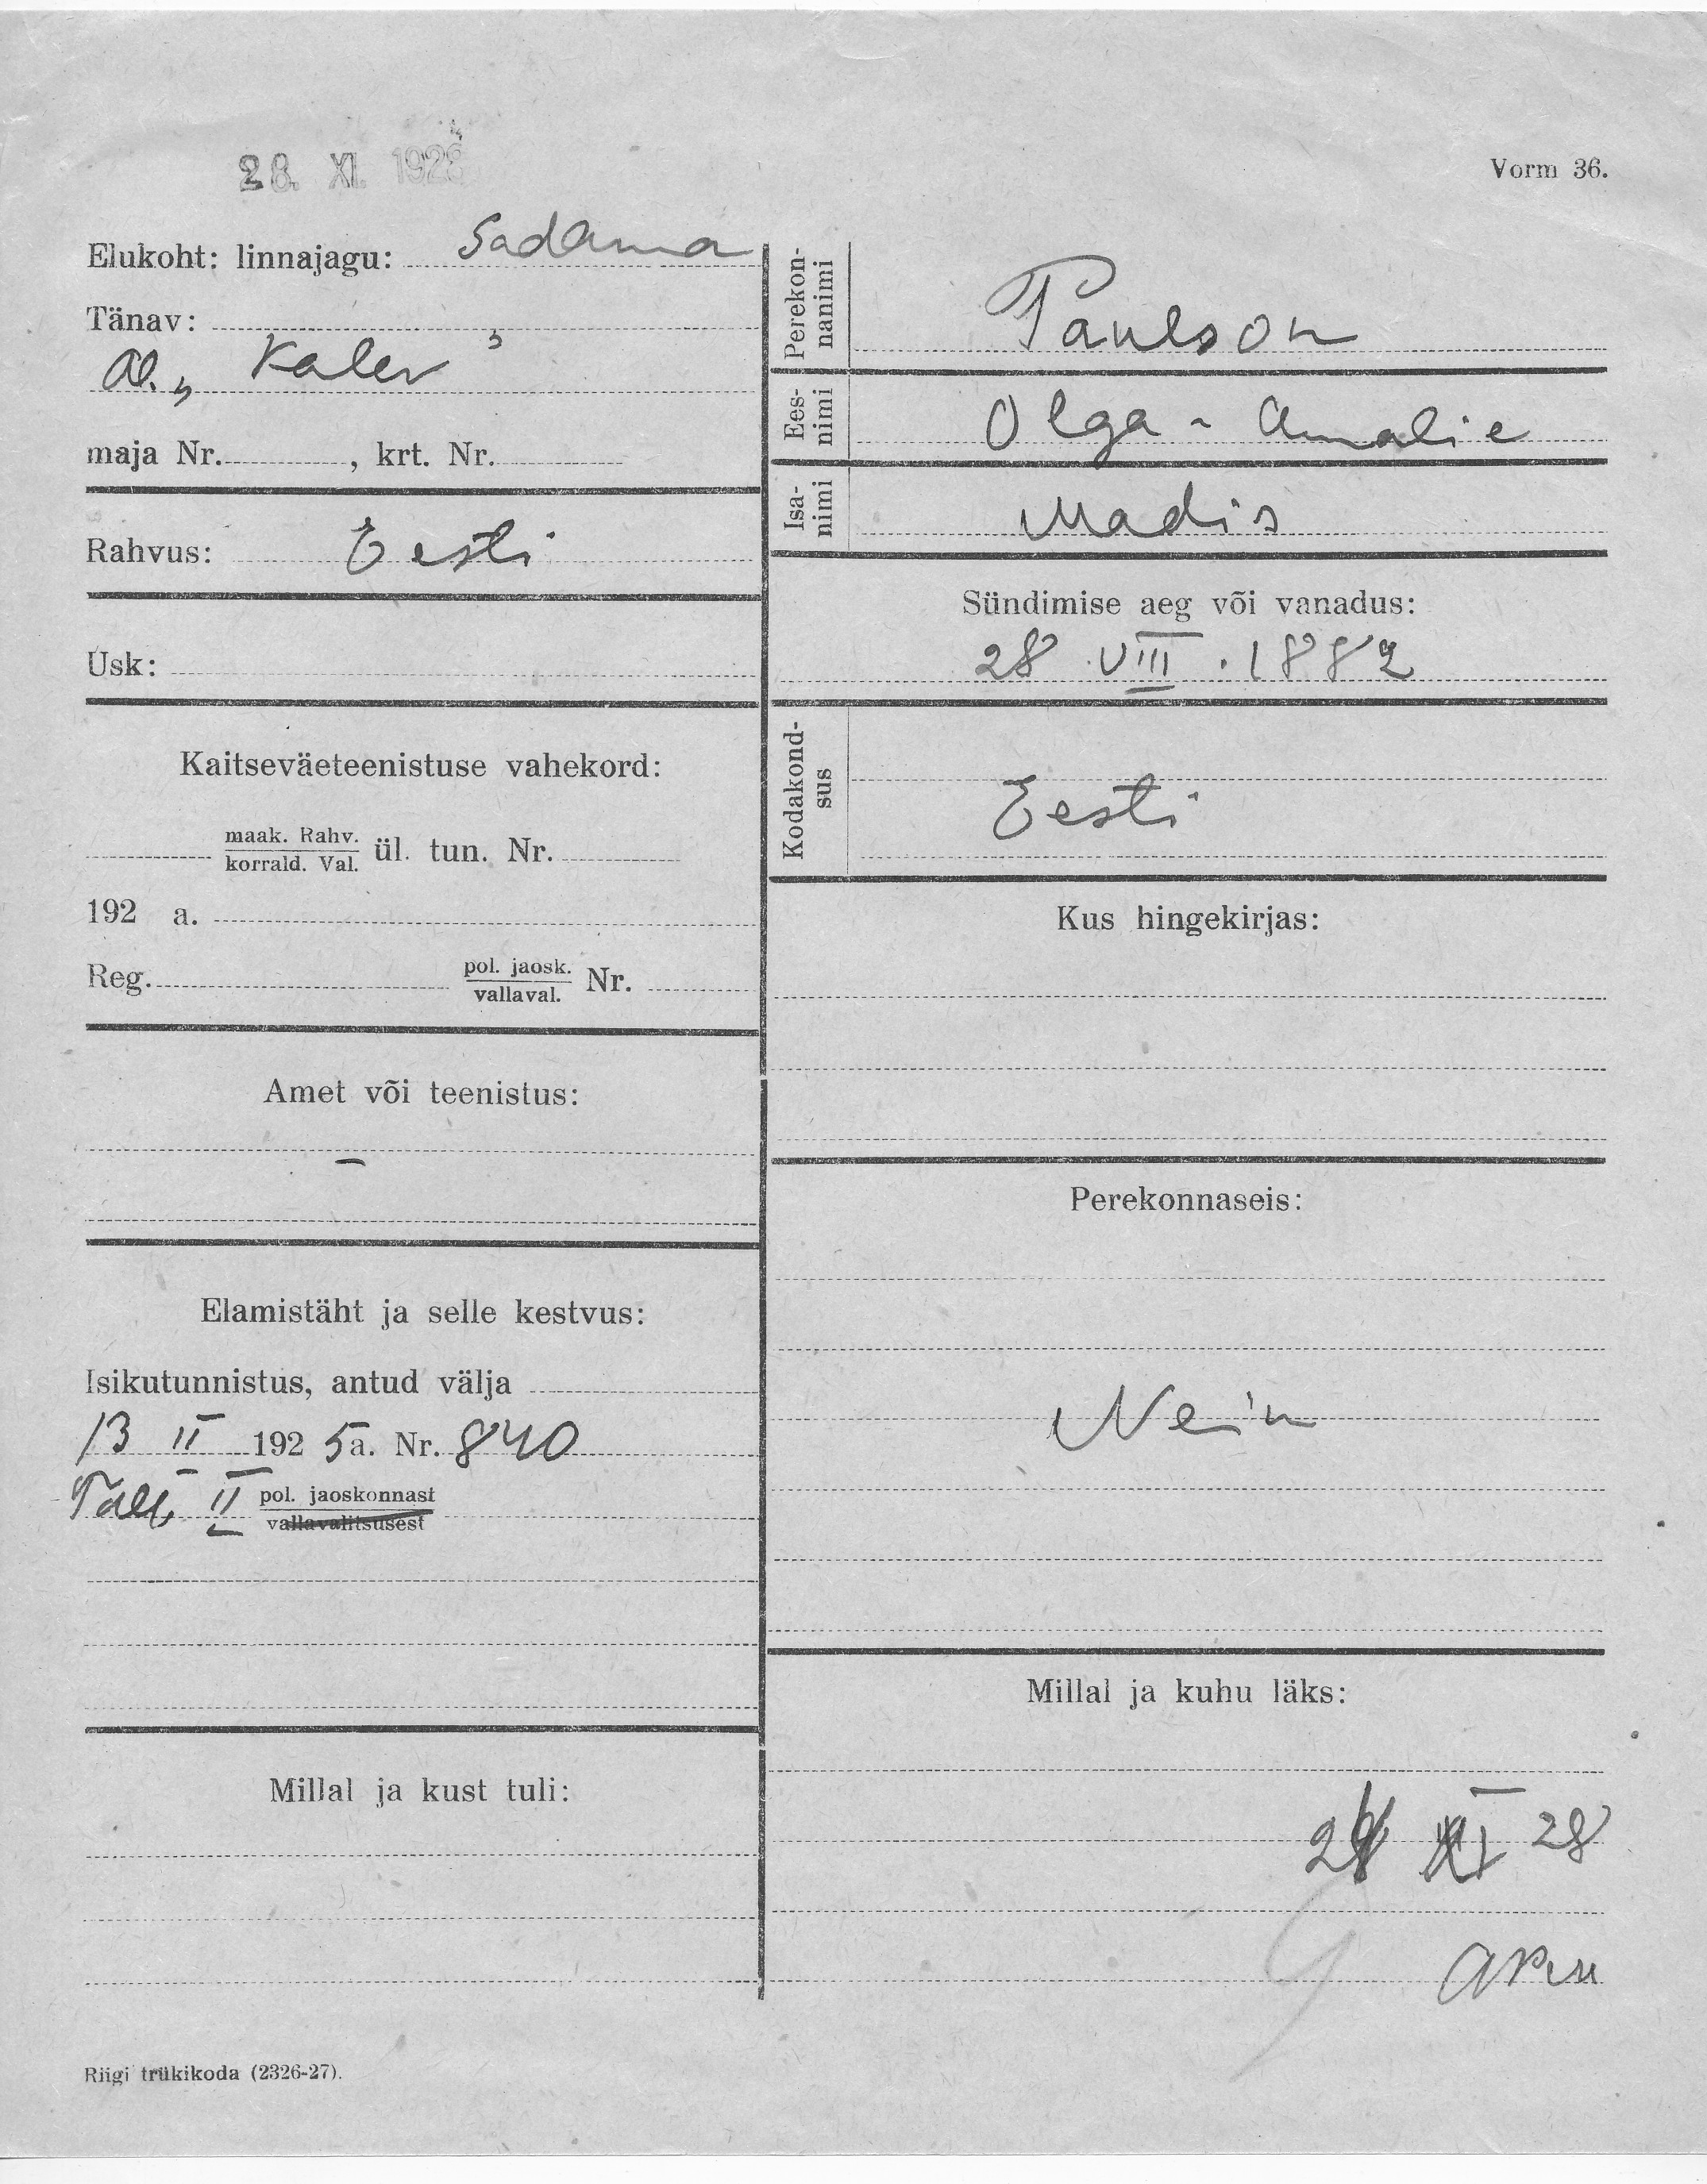 28. XI. 1928
Vorm 36.
Elukoht: linnajagu: Sadama
Tänav:
al. „Kalev"
maja Nr. , krt. Nr.
Rahvus: Eesti
Usk:
Kaitseväeteenistuse vahekord:
maak. Rahv.
korrald. Val. ül. tun. Nr.
192 a.
Reg. pol. jaosk. Nr.
vallaval.
Amet või teenistus:
–
Elamistäht ja selle kestvus:
Isikutunnistus, antud välja
13 II 1925 a. Nr. 840
Tall. II pol. jaoskonnast
vallavalitsusest
Millal ja kust tuli:
Perekon-
nanimi
Paulson
Ees-
nimi
Olga - Amalie
Isa-
nimi
Madis
Sündimise aeg või vanadus:
28. VIII. 1882
Kodakond-
sus
Eesti
Kus hingekirjas:
Perekonnaseis:
Nein
Millal ja kuhu läks:
XI 28
Riigi trükikoda (2326-27).